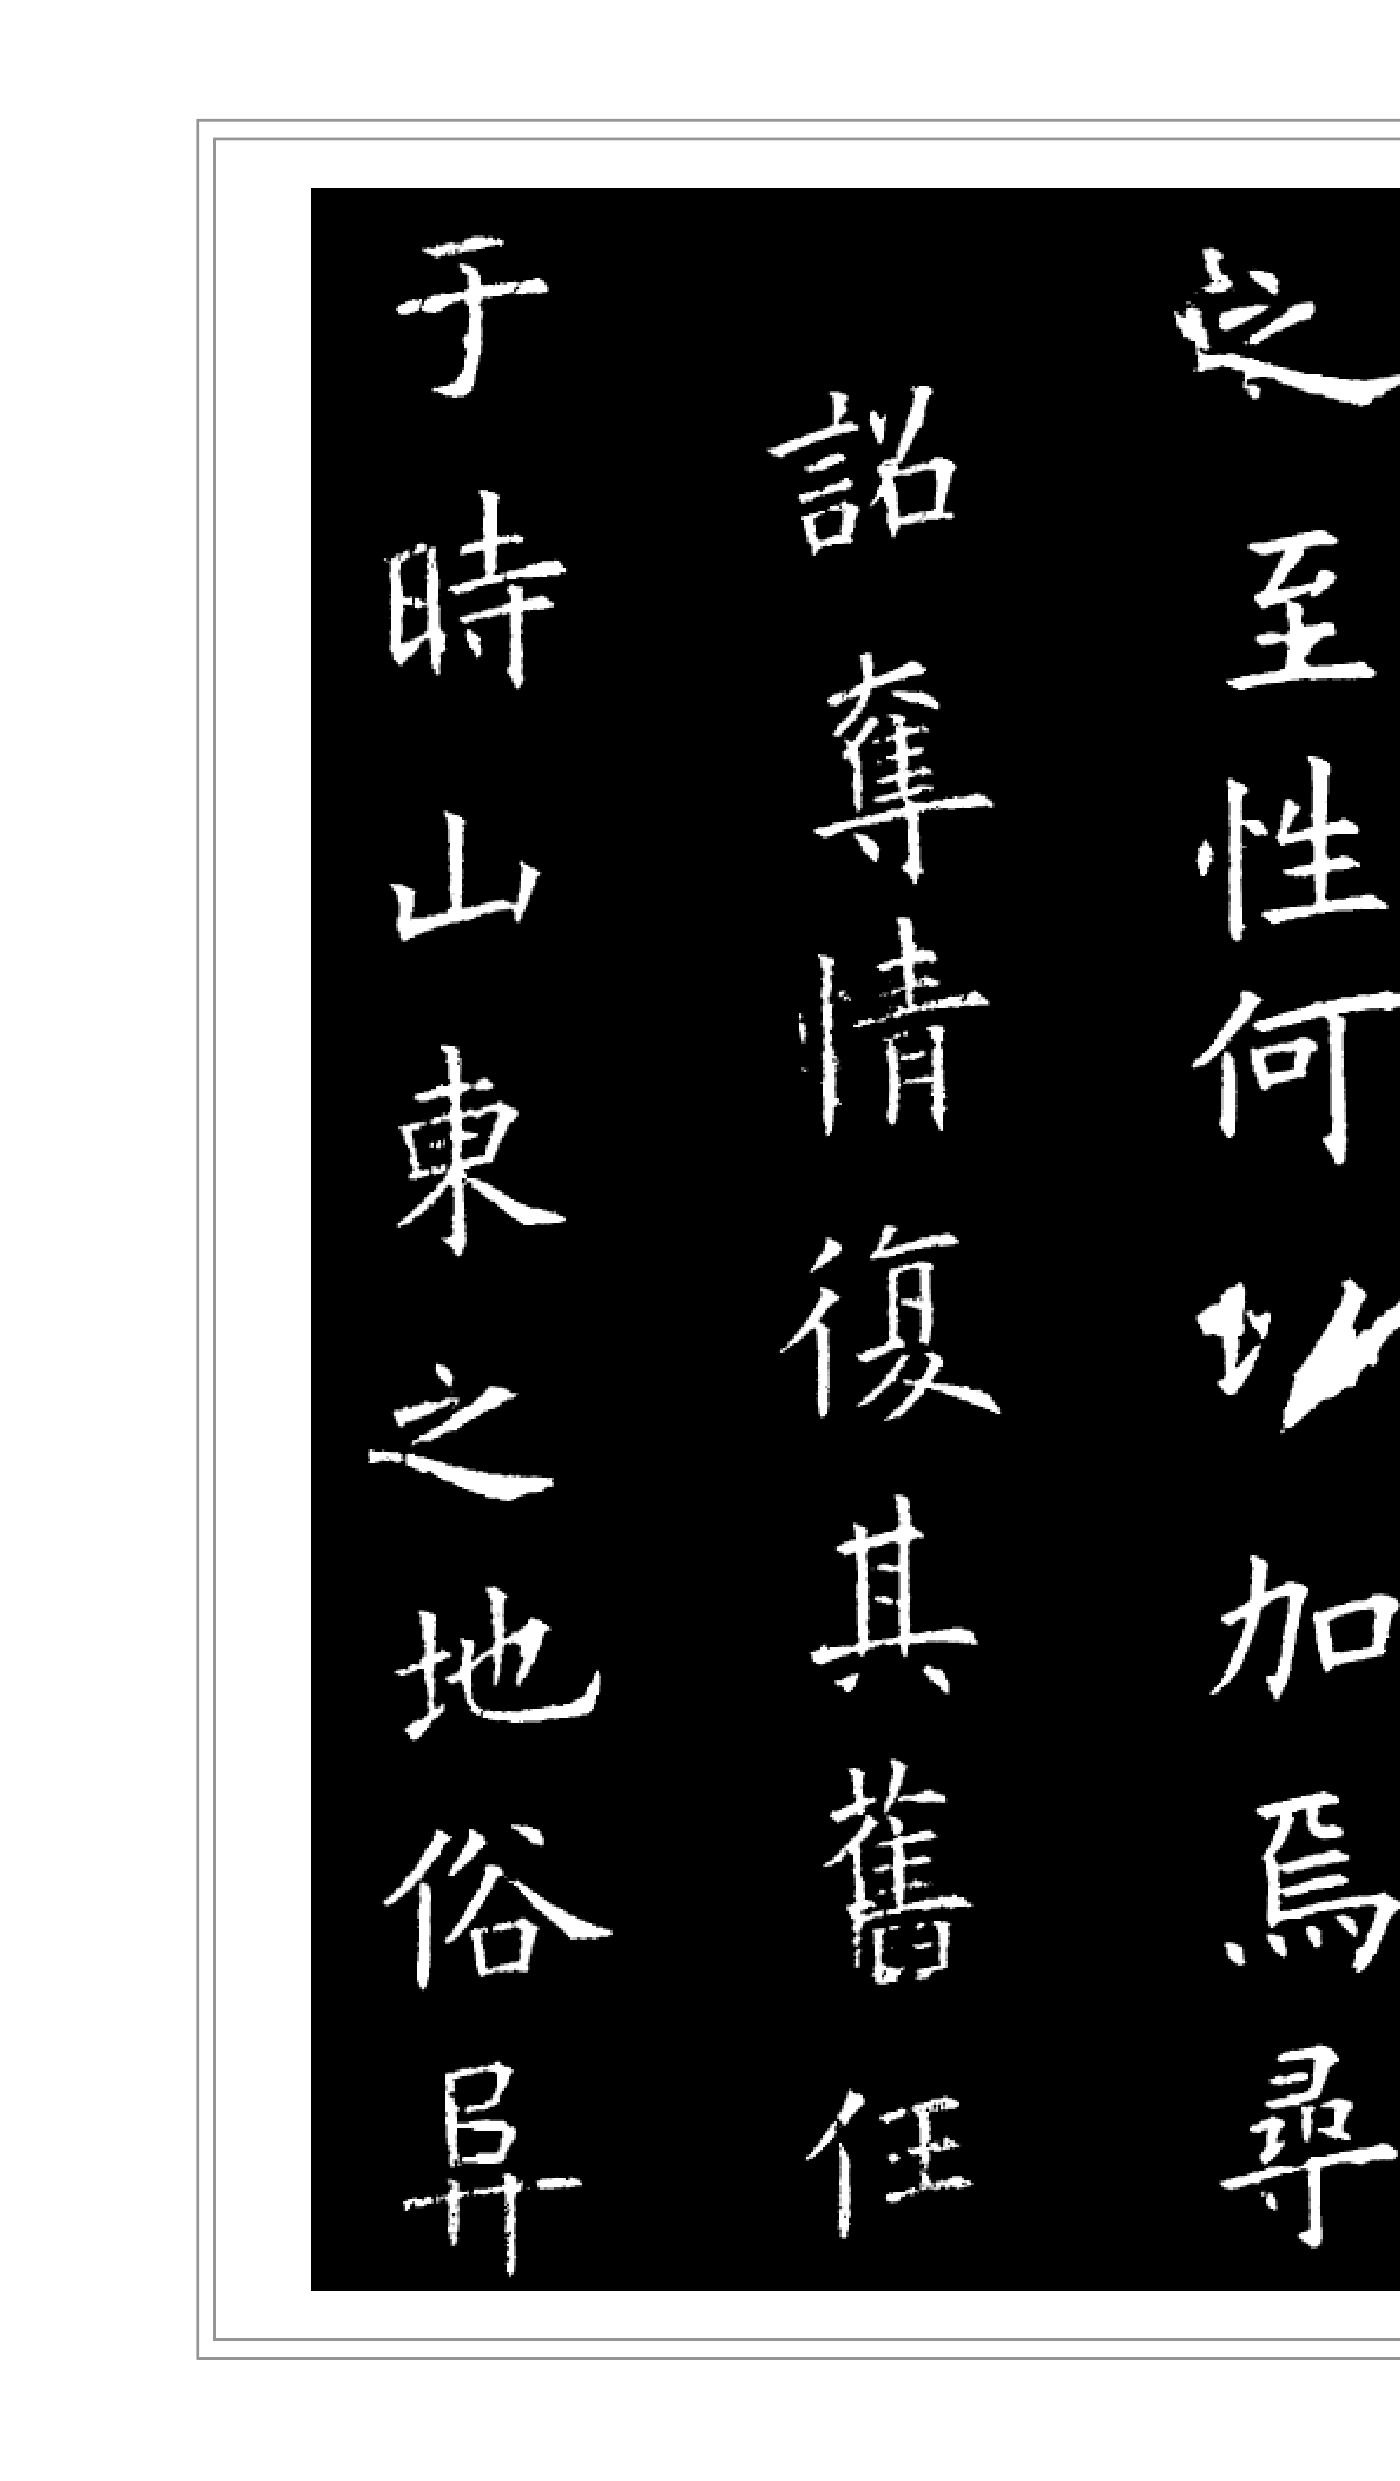 之至性何以加焉尋
詔奪情復其舊任
于時山東之地俗阜